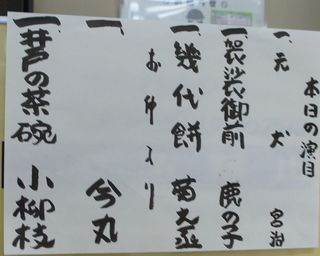 本日の演目
一、元犬 宮治
一、袈裟御前 鹿の子
一、幾代餅 菊志ん
お仲入り
一、 兮丸
一、井戸の茶碗 小柳枝